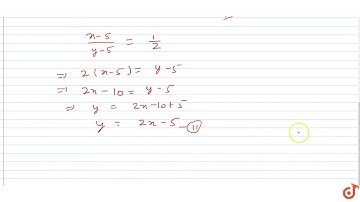 x-5/y-5 = 1/2
⇒ 2(x-5) = y-5
⇒ 2x-10 = y-5
⇒ y = 2x-10+5
y = 2x-5 -(11)